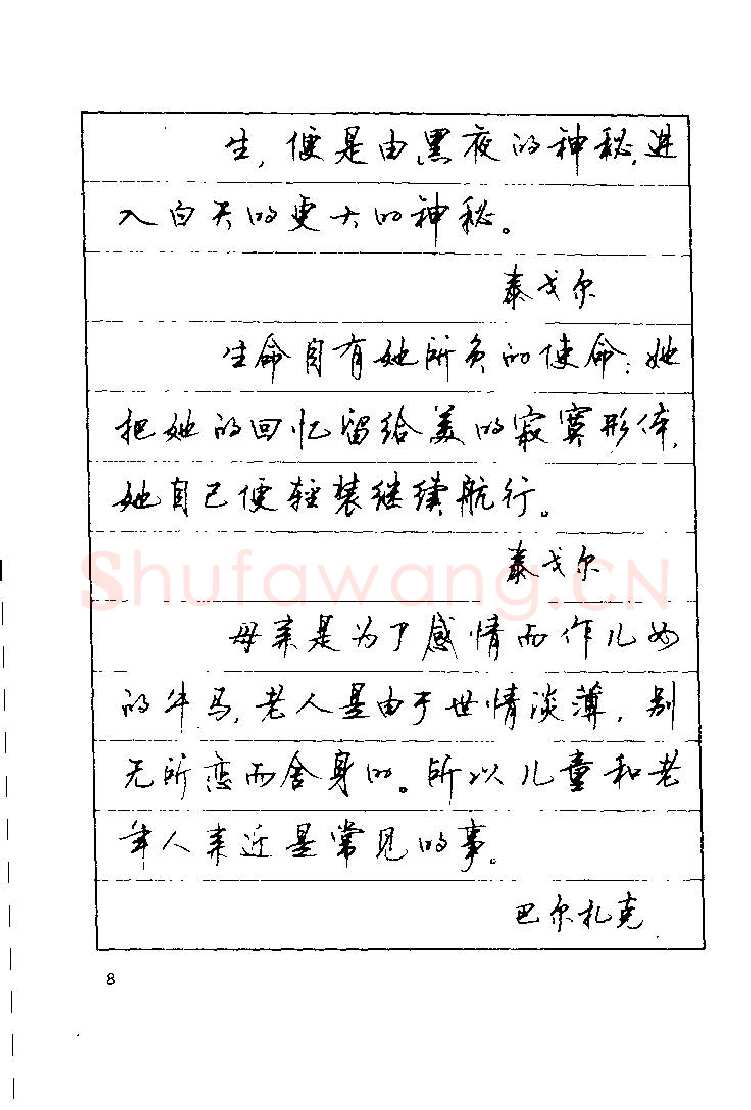 生，便是由黑夜的神秘，进
入白天的更大的神秘。
泰戈尔
生命自有她所负的使命：她
把她的回忆留给美的寂寞形体，
她自己便轻装继续航行。
泰戈尔
Shufawang.CN
母亲是为了感情而作儿女
的牛马，老人是由于世情淡薄，别
无所恋而舍身的。所以儿童和老
年人亲近是常见的事。
巴尔扎克
8